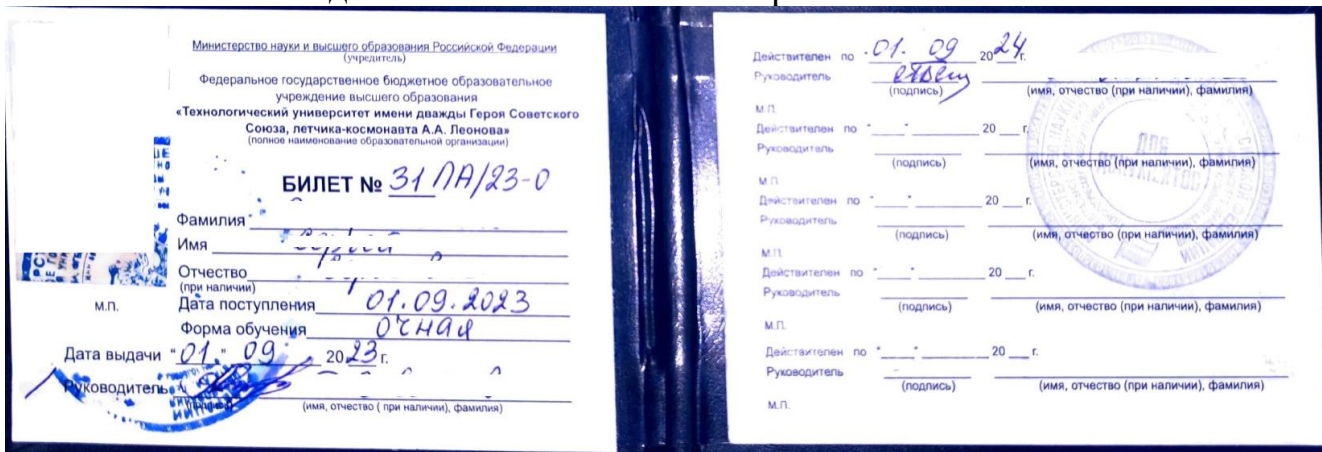 Министерство науки и высшего образования Российской Федерации
(учредитель)
Федеральное государственное бюджетное образовательное
учреждение высшего образования
«Технологический университет имени дважды Героя Советского
Союза, летчика-космонавта А.А. Леонова»
(полное наименование образовательной организации)
БИЛЕТ № 31 ПА/23-О
Фамилия
Имя
Отчество
(при наличии)
М.П.
Дата поступления 01.09.2023
Форма обучения очная
Дата выдачи "01." 09 2023 г.
Руководитель
(подпись) (имя, отчество ( при наличии), фамилия)
Действителен по "01. 09 2024 г.
Руководитель
(подпись) (имя, отчество (при наличии), фамилия)
М.П.
Действителен по "___" ______ 20 ___ г.
Руководитель
(подпись) (имя, отчество (при наличии), фамилия)
М.П.
Действителен по "___" ______ 20 ___ г.
Руководитель
(подпись) (имя, отчество (при наличии), фамилия)
М.П.
Действителен по "___" ______ 20 ___ г.
Руководитель
(подпись) (имя, отчество (при наличии), фамилия)
М.П.
Действителен по "___" ______ 20 ___ г.
Руководитель
(подпись) (имя, отчество (при наличии), фамилия)
М.П.
ДЛЯ
ДОКУМЕНТОВ